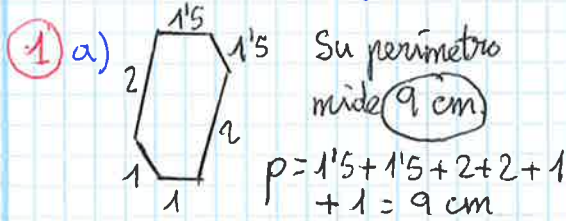 1 a)
1'5
1'5
2
2
1
1
Su perímetro
mide 9 cm
p = 1'5 + 1'5 + 2 + 2 + 1
+ 1 = 9 cm